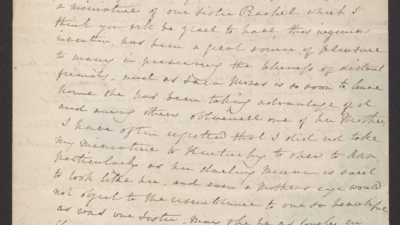 a miniature of our Sister Rachel which I
think you will be glad to have this ingenious
invention has been a great source of pleasure
to many in preserving the likeness of distant
friends, and as Sara is so soon to leave
home she has been taking advantage of it
and among others obtained one of her Mother
I have often regretted that I did not take
my miniature to Kentucky to show to
particularly as her darling Miriam is said
to look like her. and even a Mothers eye would
not object to the resemblance to one so beautiful
as was our Sister. May she be as lovely in